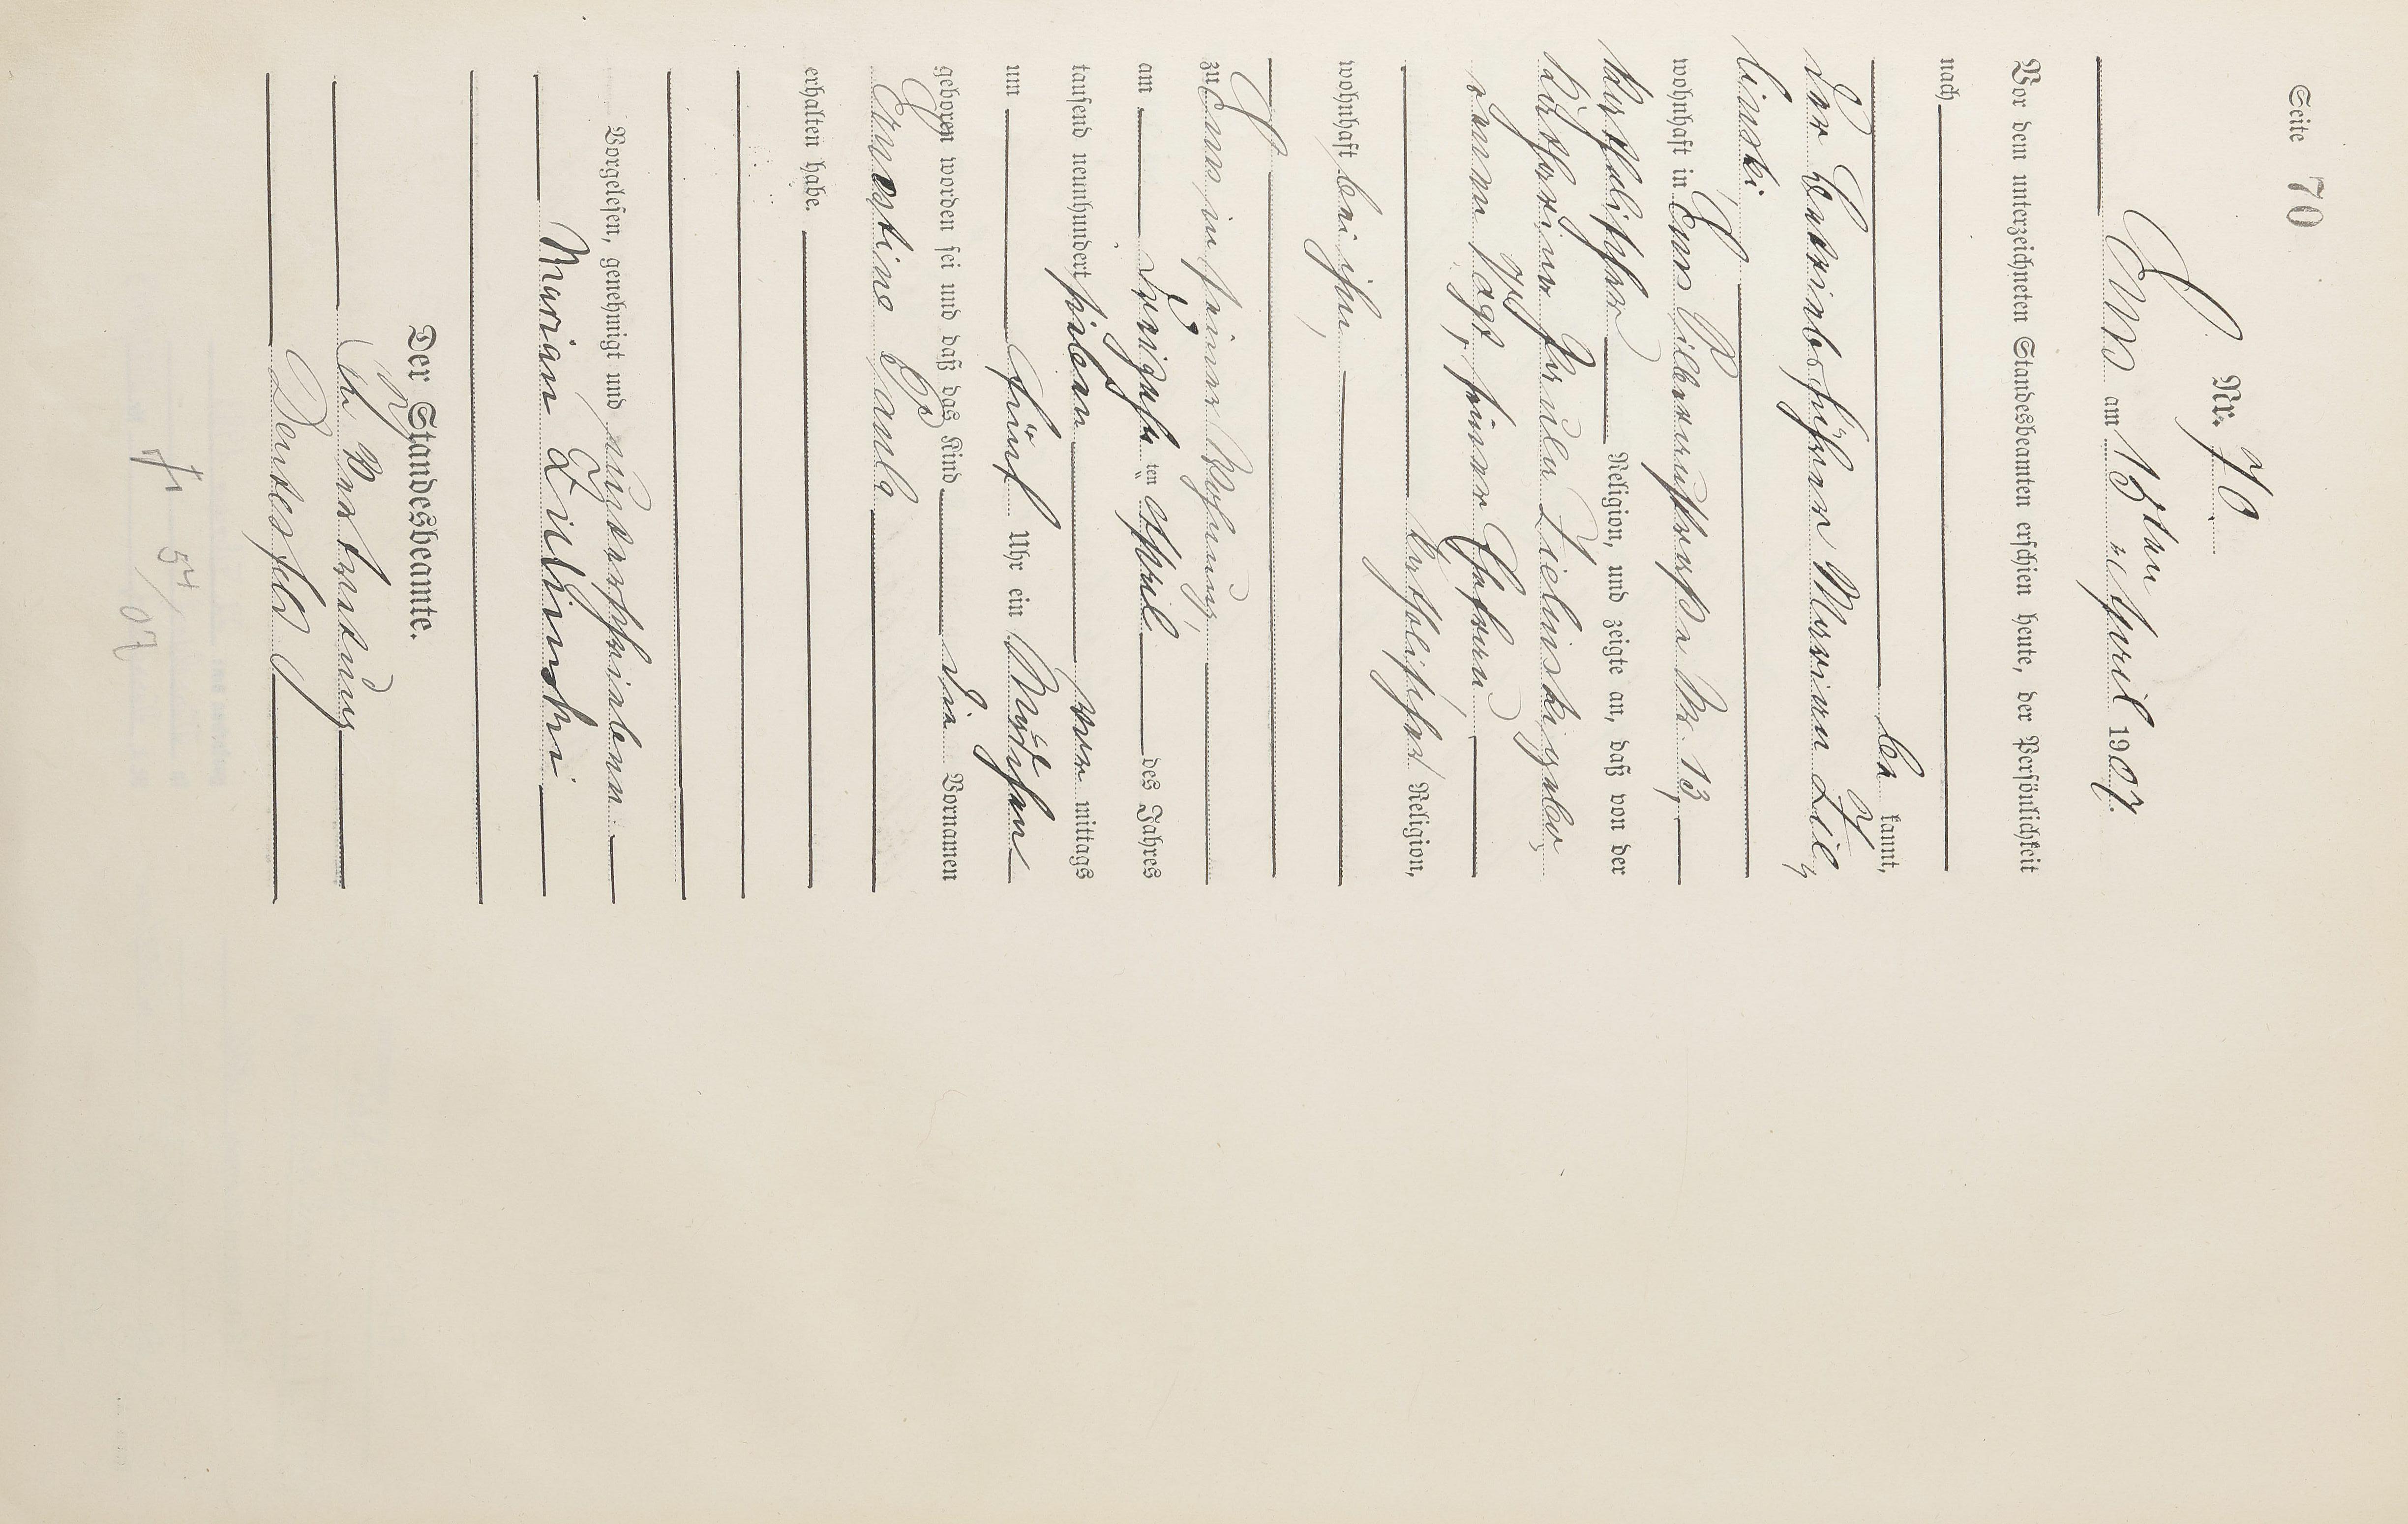 Seite 70
Nr. 70
Ems am 15ten April 1907.
Vor dem unterzeichneten Standesbeamten erschien heute, der Persönlichkeit
nach
be kannt,
der Betriebsführer Marian Ziel-
linski
wohnhaft in Ems Silberaustraße Nr. 13,
katholischer Religion, und zeigte an, daß von der
Katharina Paula Zielinski, gebo-
renen Vogt, seiner Ehefrau
katholischer Religion,
wohnhaft bei ihm,
zu Ems, in seiner Wohnung,
am dreizehn ten April des Jahres
tausend neunhundert sieben vor mittags
um fünf Uhr ein Mädchen
geboren worden sei und daß das Kind die Vornamen
Ernestine Paula
erhalten habe.
Vorgelesen, genehmigt und unterschrieben
Marian Zielinski
Der Standesbeamte.
In Vertretung